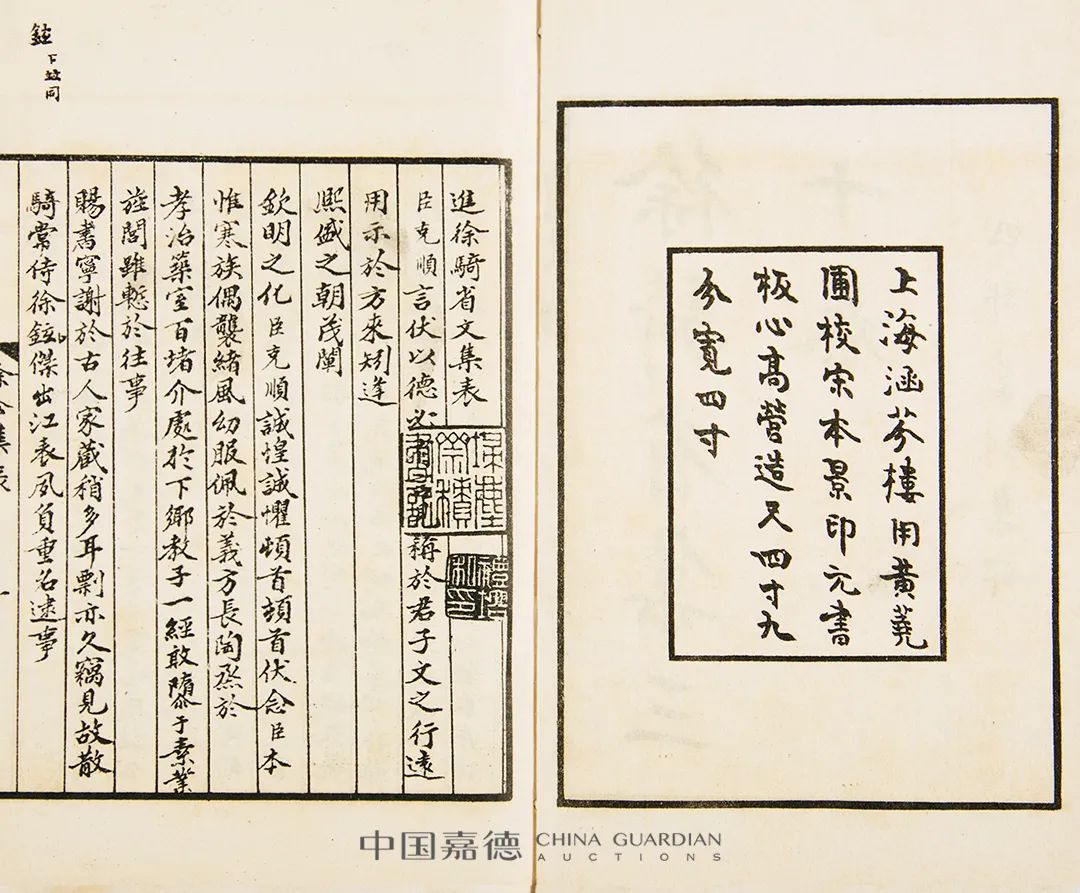 上海涵芬樓用黃蕘
圃校宋本景印元書
板心高營造尺四寸九
分寬四寸
鉉下並同
進徐騎省文集表
臣克順言伏以德必稱於君子文之行遠
用示於方來矧逢
熙盛之朝茂闡
欽明之化臣克順誠惶誠懼頓首頓首伏念臣本
惟寒族偶襲緒風幼服佩於義方長陶烝於
孝治築室百堵介處於下鄉教子一經敢隳于素業
旌閭雖慙於往事
賜書寧謝於古人家藏稍多耳剽亦久竊見故散
騎常侍徐鉉傑出江表夙負重名逮事
埽塵齋積書記
禮培私印
中国嘉德 CHINA GUARDIAN AUCTIONS